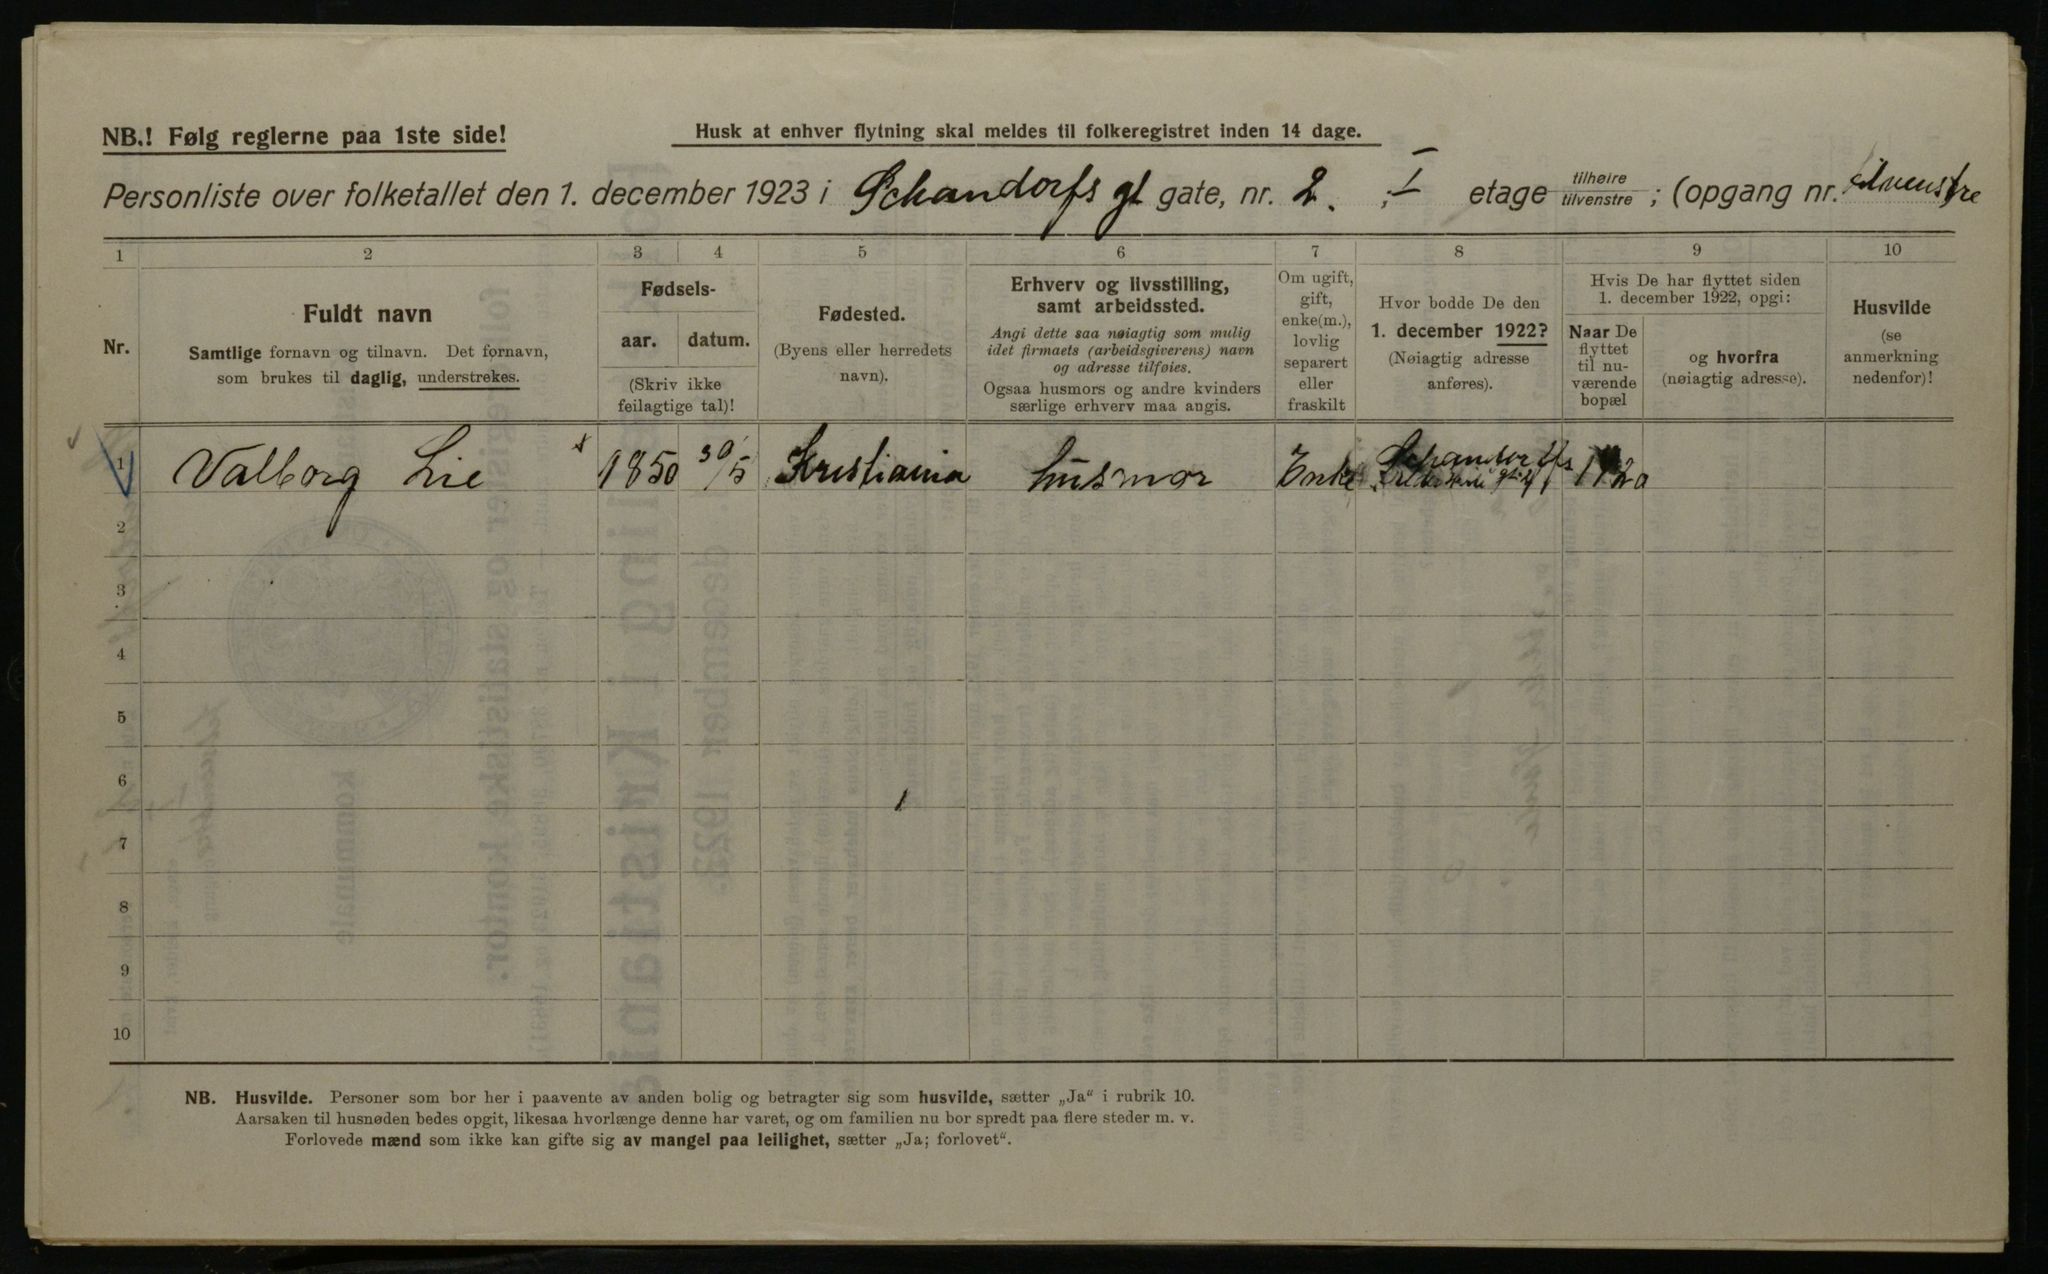 NB.! Følg reglerne paa 1ste side!
Husk at enhver flytning skal meldes til folkeregistret inden 14 dage.
Personliste over folketallet den 1. december 1923 i Schandorfs gt gate, nr. 2. ; I etage tilhøire/tilvenstre ; (opgang nr. tilvenstre
1 2 3 4 5 6 7 8 9 10
Nr.
Fuldt navn
Samtlige fornavn og tilnavn. Det fornavn,
som brukes til daglig, understrekes.
Fødsels-
aar. datum.
(Skriv ikke
feilagtige tal)!
Fødested.
(Byens eller herredets
navn).
Erhverv og livsstilling,
samt arbeidssted.
Angi dette saa nøiagtig som mulig
idet firmaets (arbeidsgiverens) navn
og adresse tilføies.
Ogsaa husmors og andre kvinders
særlige erhverv maa angis.
Om ugift,
gift,
enke(m.),
lovlig
separert
eller
fraskilt
Hvor bodde De den
1. december 1922?
(Nøiagtig adresse
anføres).
Hvis De har flyttet siden
1. december 1922, opgi:
Naar De
flyttet
til nu-
værende
bopæl
og hvorfra
(nøiagtig adresse).
Husvilde
(se
anmerkning
nedenfor)!
1 Valborg Lie 1850 30/5 Kristiania husmor Enke Schandorffs 1920
2
3
4
5
6
7
8
9
10
NB. Husvilde. Personer som bor her i paavente av anden bolig og betragter sig som husvilde, sætter „Ja“ i rubrik 10.
Aarsaken til husnøden bedes opgit, likesaa hvorlænge denne har varet, og om familien nu bor spredt paa flere steder m. v.
Forlovede mænd som ikke kan gifte sig av mangel paa leilighet, sætter „Ja; forlovet“.